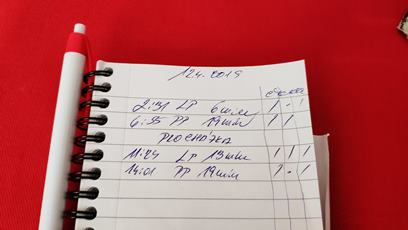 12.4.2019
2:31 LP 6 min 1 - 1
6:35 PP 19 min 1 1
PROCHÁZKA
11:24 LP 13 min 1 1 1
14:01 PP 19 min 1 - 1